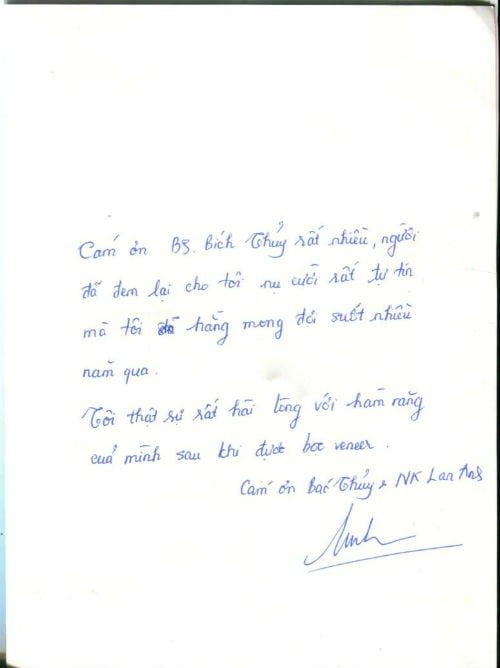 Cám ơn BS. Bích Thủy rất nhiều, người
đã đem lại cho tôi nụ cười rất tự tin
mà tôi đã hằng mong đợi suốt nhiều
năm qua.
Tôi thật sự rất hài lòng với hàm răng
của mình sau khi được bọc veneer.
Cám ơn Bác Thủy & NK Lan Anh